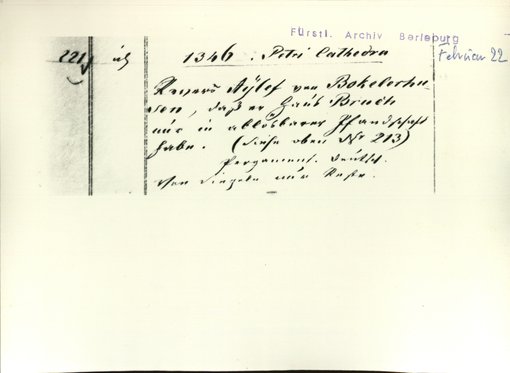 Fürstl. Archiv Berleburg
Februar 22
221 
1346. Petri Cathedra
Revers Aylof von Bokelerhu-
sen, daß er Haus Bruch
nur in ablösbarer Pfandschaft
habe. (Siehe oben No 213)
Pergament. Deutsch.
Von Siegeln nur Reste.